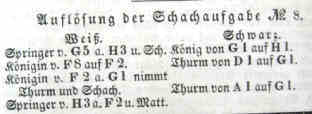 Auflösung der Schachaufgabe № 8.
Weiß. Schwarz.
Springer v. G5 a. H3 u. Sch. König von G1 auf H1.
Königin v. F8 auf F2. Thurm von D1 auf G1.
Königin v. F2 a. G1 nimmt
Thurm und Schach. Thurm von A1 auf G1.
Springer v. H3 a. F2 u. Matt.